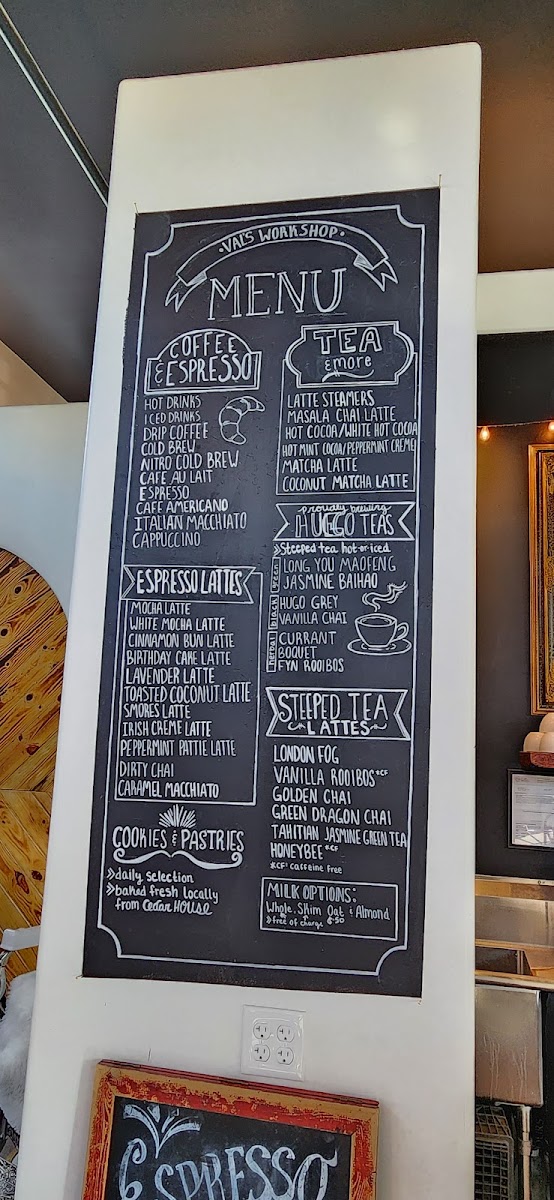 ·VAL'S WORKSHOP·
MENU
COFFEE
& ESPRESSO
HOT DRINKS
ICED DRINKS
DRIP COFFEE
COLD BREW
NITRO COLD BREW
CAFE AU LAIT
ESPRESSO
CAFE AMERICANO
ITALIAN MACCHIATO
CAPPUCCINO
ESPRESSO LATTES
MOCHA LATTE
WHITE MOCHA LATTE
CINNAMON BUN LATTE
BIRTHDAY CAKE LATTE
LAVENDER LATTE
TOASTED COCONUT LATTE
SMORES LATTE
IRISH CREME LATTE
PEPPERMINT PATTIE LATTE
DIRTY CHAI
CARAMEL MACCHIATO
COOKIES & PASTRIES
daily selection
baked fresh locally
from Cedar HOUSE
TEA
& more
LATTE STEAMERS
MASALA CHAI LATTE
HOT COCOA/WHITE HOT COCOA
HOT MINT COCOA/PEPPERMINT CREME
MATCHA LATTE
COCONUT MATCHA LATTE
proudly brewing
HUGO TEAS
Steeped tea hot or iced
green
LONG YOU MAOFENG
JASMINE BAIHAO
black
HUGO GREY
VANILLA CHAI
herbal
CURRANT
BOQUET
FYN ROOIBOS
STEEPED TEA
LATTES
LONDON FOG
VANILLA ROOIBOS*CF
GOLDEN CHAI
GREEN DRAGON CHAI
TAHITIAN JASMINE GREEN TEA
HONEYBEE*CF
*CF: caffeine free
MILK OPTIONS:
Whole, Skim Oat & Almond
free of charge
ESPRESSO